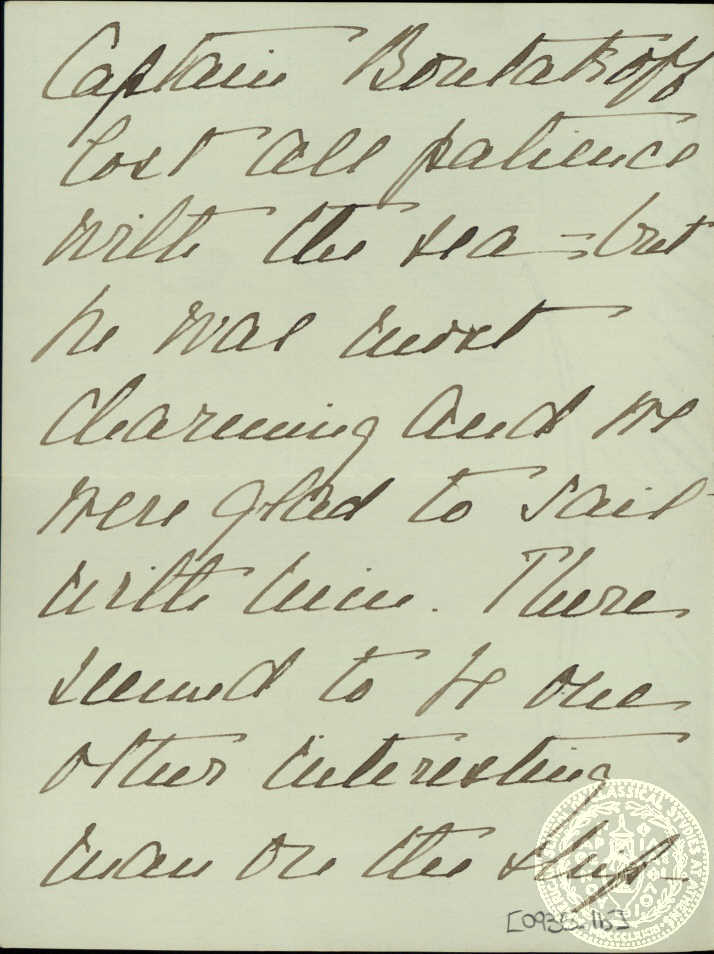 Captain Boutakoff
lost all patience
with the sea - but
he was most
charming and we
were glad to sail
with him. There
seemed to be one
other interesting
man on the ship -
[0935.1b]